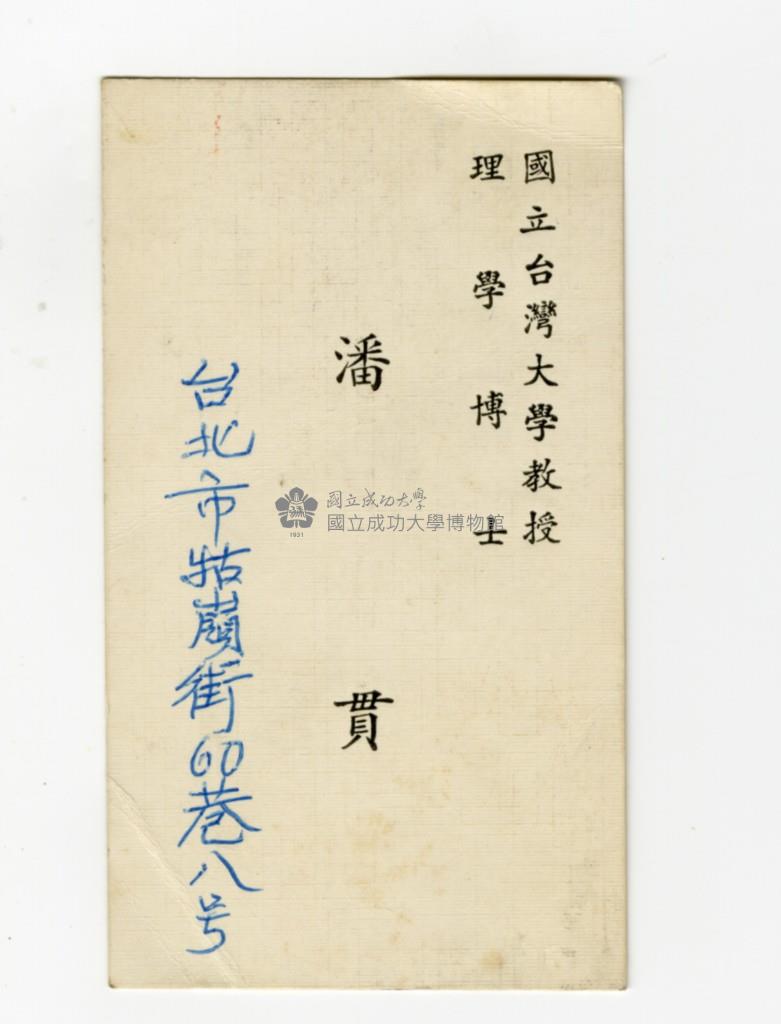 國立台灣大學教授
理學博士
潘貫
台北市牯嶺街60巷八号
國立成功大學
國立成功大學博物館
1931